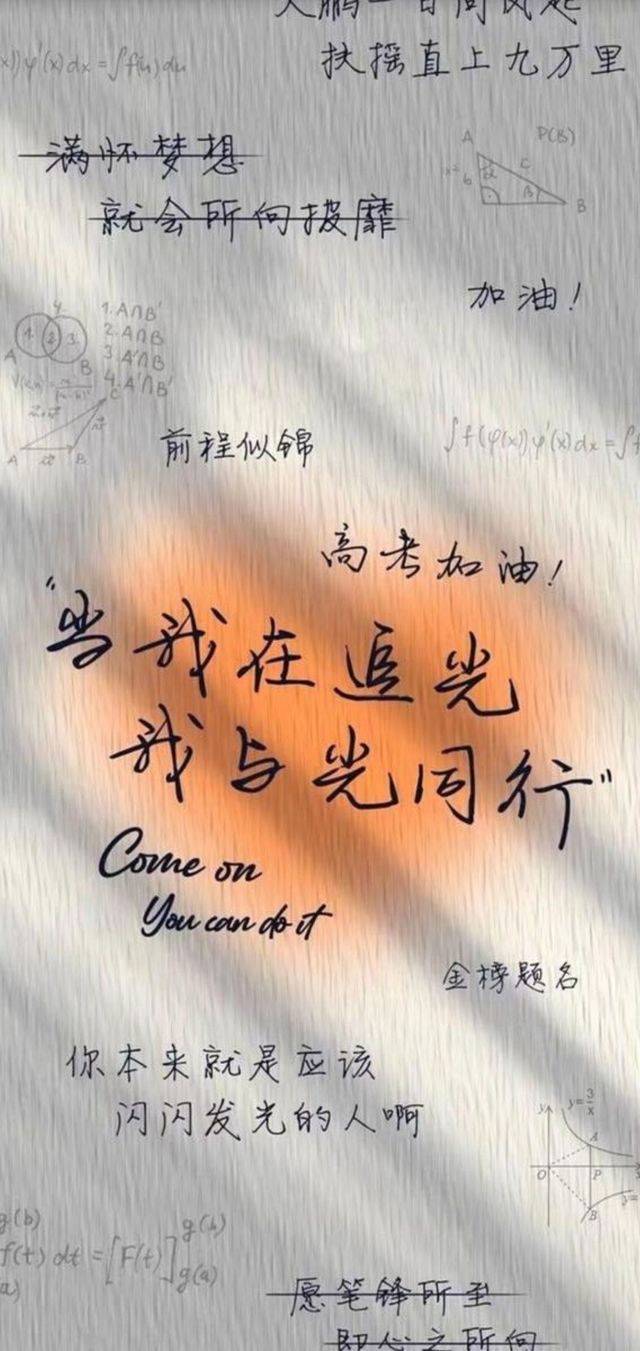 大鹏一日同风起
扶摇直上九万里
x))φ'(x)dx=∫f(u)du
满怀梦想
就会所向披靡
A
P(B)
C
b
B
B
加油！
4
1. 2. 3.
A
B
1. A∩B'
2. A∩B
3. A'∩B
4. A'∩B'
C
A
B
前程似锦
∫f(φ(x))φ'(x)dx=∫f
高考加油！
“当我在追光
我与光同行”
Come on
You can do it
金榜题名
你本来就是应该
闪闪发光的人啊
y
y=3/x
A
O
P
B
y=
g(b)
f(t)dt=[F(t)]
g(b)
g(a)
a)
愿笔锋所至
即心之所向